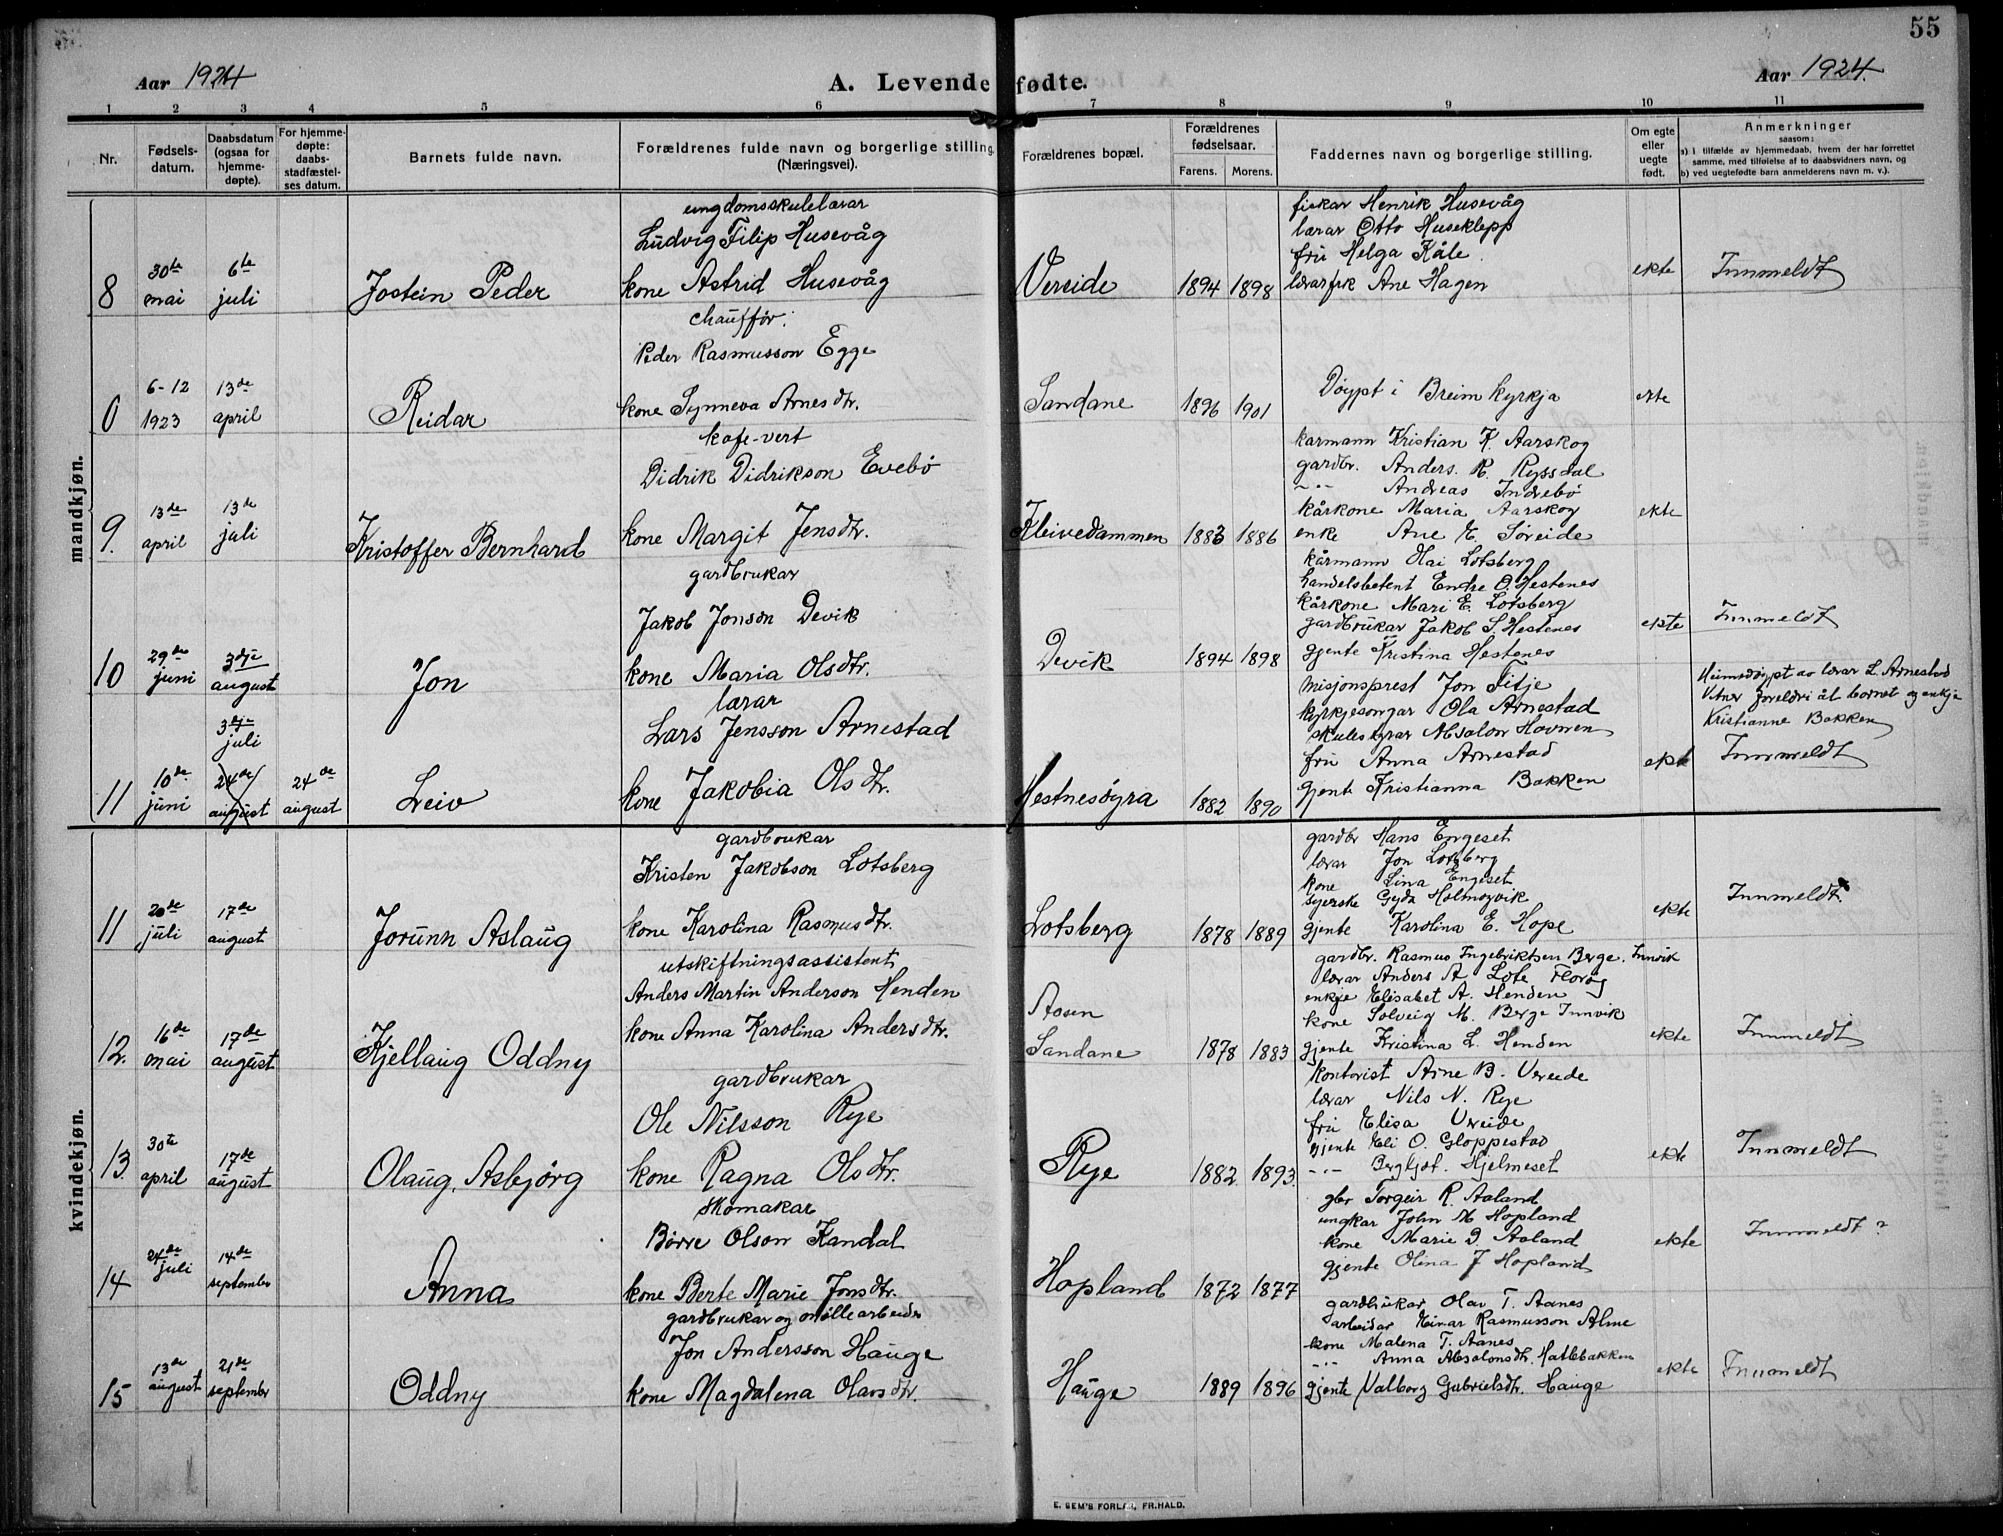 55
Aar 1924
A. Levende fødte.
Aar 1924.
1 2 3 4 5 6 7 8 9 10 11
Nr.
Fødsels-
datum.
Daabsdatum
(ogsaa for
hjemme-
døpte).
For hjemme-
døpte:
daabs-
stadfæstel-
ses datum.
Barnets fulde navn.
Forældrenes fulde navn og borgerlige stilling
(Næringsvei).
Forældrenes bopæl.
Forældrenes
fødselsaar.
Farens. Morens.
Faddernes navn og borgerlige stilling.
Om egte
eller
uegte
født.
Anmerkninger
saasom:
a) i tilfælde av hjemmedaab, hvem der har forrettet
samme, med tilføielse af to daabsvidners navn, og
b) ved uegtefødte barn anmelderens navn m. v.).
mandkjøn.
8
30te
mai
6te
juli
Jostein Peder
ungdomsskulelærar
Ludvig Filip Husevåg
kone Astrid Husevåg
Vereide
1894 1898
fiskar Henrik Husevåg
lærar Otto Huseklepp
fru Helga Kåle
lærarfrk Ane Hagen
ekte
Innmeldt
0
6-12
1923
13de
april
Reidar
chauffør.
Peder Rasmusson Egge
kone Synneva Arnesdtr.
Sandane
1896 1901
Døypt i Breim kyrkja
ekte
9.
13de
april
13de
juli
Kristoffer Bernhard
kafe-vert
Didrik Didrikson Evebø
kone Margit Jensdtr.
Kleivedammen
1883 1886
karmann Kristian K. Aarskog
gardbr. Anders. R. Ryssdal
-"- Andreas Indrebø
kårkone Maria Aarskog
enke Ane E. Søreide
ekte
10
29de
juni
3dje
august
Jon
gardbrukar
Jakob Jonson Devik
kone Maria Olsdtr.
Devik
1894 1898
kårmann Olai Lotsberg
handelsbetent Endre O. Hestenes
kårkone Mari E. Lotsberg
gardbrukar Jakob S. Hestenes
gjente Kristina Hestenes
ekte
Innmeldt
11
10de
juni
3dje
juli
24de
august
24de
august
Leiv
lærar
Lars Jensson Arnestad
kone Jakobia Olsdtr.
Hestnesøyra
1882 1890
misjonsprest Jon Fitje
kyrkjesongar Ola Arnestad
skulestyrar Absalon Hovnen
fru Anna Arnestad
gjente Kristianna Bakken
ekte
Heimedøypt av lærar L. Arnestad
Vitner foreldri åt barnet og enkja
Kristianne Bakken
Innmeldt
kvindekjøn.
11
20de
juli
17de
august
Jorunn Aslaug
gardbrukar
Kristen Jakobson Lotsberg
kone Karolina Rasmusdtr.
Lotsberg
1878 1889
gardbr Hans Engeset
lærar Jon Lotsberg
kone Lina Engeset
syerske Gyda Holmøyvik
gjente Karolina E. Hope
ekte
Innmeldt
12.
16de
mai
17de
august
Kjellaug Oddny
utskiftningsassistent
Anders Martin Anderson Henden
kone Anna Karolina Andersdtr.
Aasen
Sandane
1878 1883
gardbr. Rasmus Ingebriktsen Berge. Innvik
lærar Anders A Lote Florøy
enkje Elisabet A. Henden
kone Solveig M. Berge Innvik
gjente Kristina L. Henden
ekte
Innmeldt
13.
30te
april
17de
august
Olaug, Asbjørg
gardbrukar
Ole Nilsson Rye
kone Ragna Olsdtr.
Rye
1882 1893
kontorist Arne B. Vereide
lærar Nils N. Rye
fru Elisa Vereide
gjente Eli O. Gloppestad
-"- Bergljot. Hjelmeset
ekte
Innmeldt
14
24de
juli
14de
september
Anna
skomakar
Børre Olson Kandal
kone Berte Marie Jonsdtr.
Hopland
1872 1877
gbr Torgeir R. Aaland
ungkar John M Hopland
kone Marie D. Aaland
gjente Olina J Hopland
ekte
Innmeldt?
15
13de
august
21de
septembr
Oddny
gardbrukar og møllearbeider
Jon Andersson Hauge
kone Magdalena Olavsdtr.
Hauge
1889 1896
gardbrukar Olav T. Aanes
arbeidar Einar Rasmusson Alme
kone Malena T. Aanes
-"- Anna Absalonsdtr. Hatlebakken
gjente Valborg Gabrielsdtr. Hauge
ekte
Innmeldt
E. SEM'S FORLAG, FR.HALD.